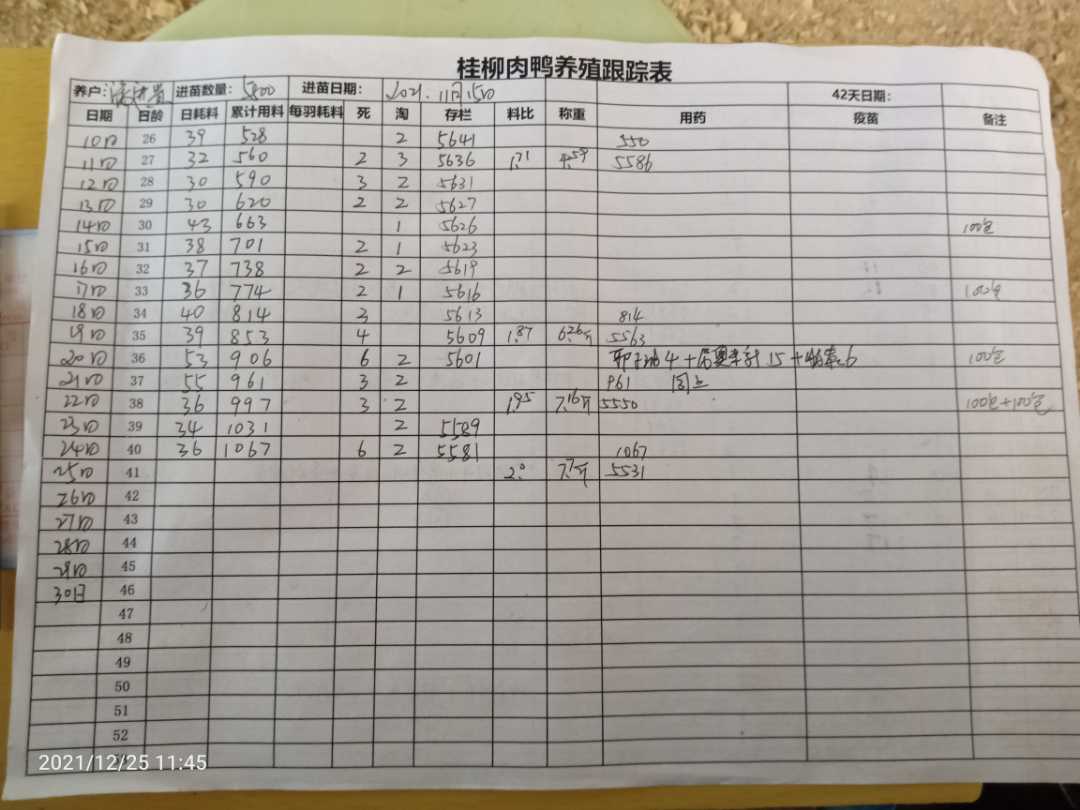 桂柳肉鸭养殖跟踪表
养户: 进苗数量: 5800 进苗日期: 2021.11月15日 42天日期:
日期 日龄 日耗料 累计用料 每羽耗料 死 淘 存栏 料比 称重 用药 疫苗 备注
10日 26 39 528 2 5641 550
11日 27 32 560 2 3 5636 1.71 4.59 5586
12日 28 30 590 3 2 5631
13日 29 30 620 2 2 5627
14日 30 43 663 1 5626 100包
15日 31 38 701 2 1 5623
16日 32 37 738 2 2 5619
17日 33 36 774 2 1 5616 100包
18日 34 40 814 3 5613 814
19日 35 39 853 4 5609 1.87 6.26斤 5563
20日 36 53 906 6 2 5601 4 + 15 + 6 100包
21日 37 55 961 3 2 961 同上
22日 38 36 997 3 2 1.95 7.16斤 5550 100包+100包
23日 39 34 1031 2 5589
24日 40 36 1067 6 2 5581 1067
25日 41 2.0 7.7斤 5531
26日 42
27日 43
28日 44
29日 45
30日 46
47
48
49
50
51
52
2021/12/25 11:45